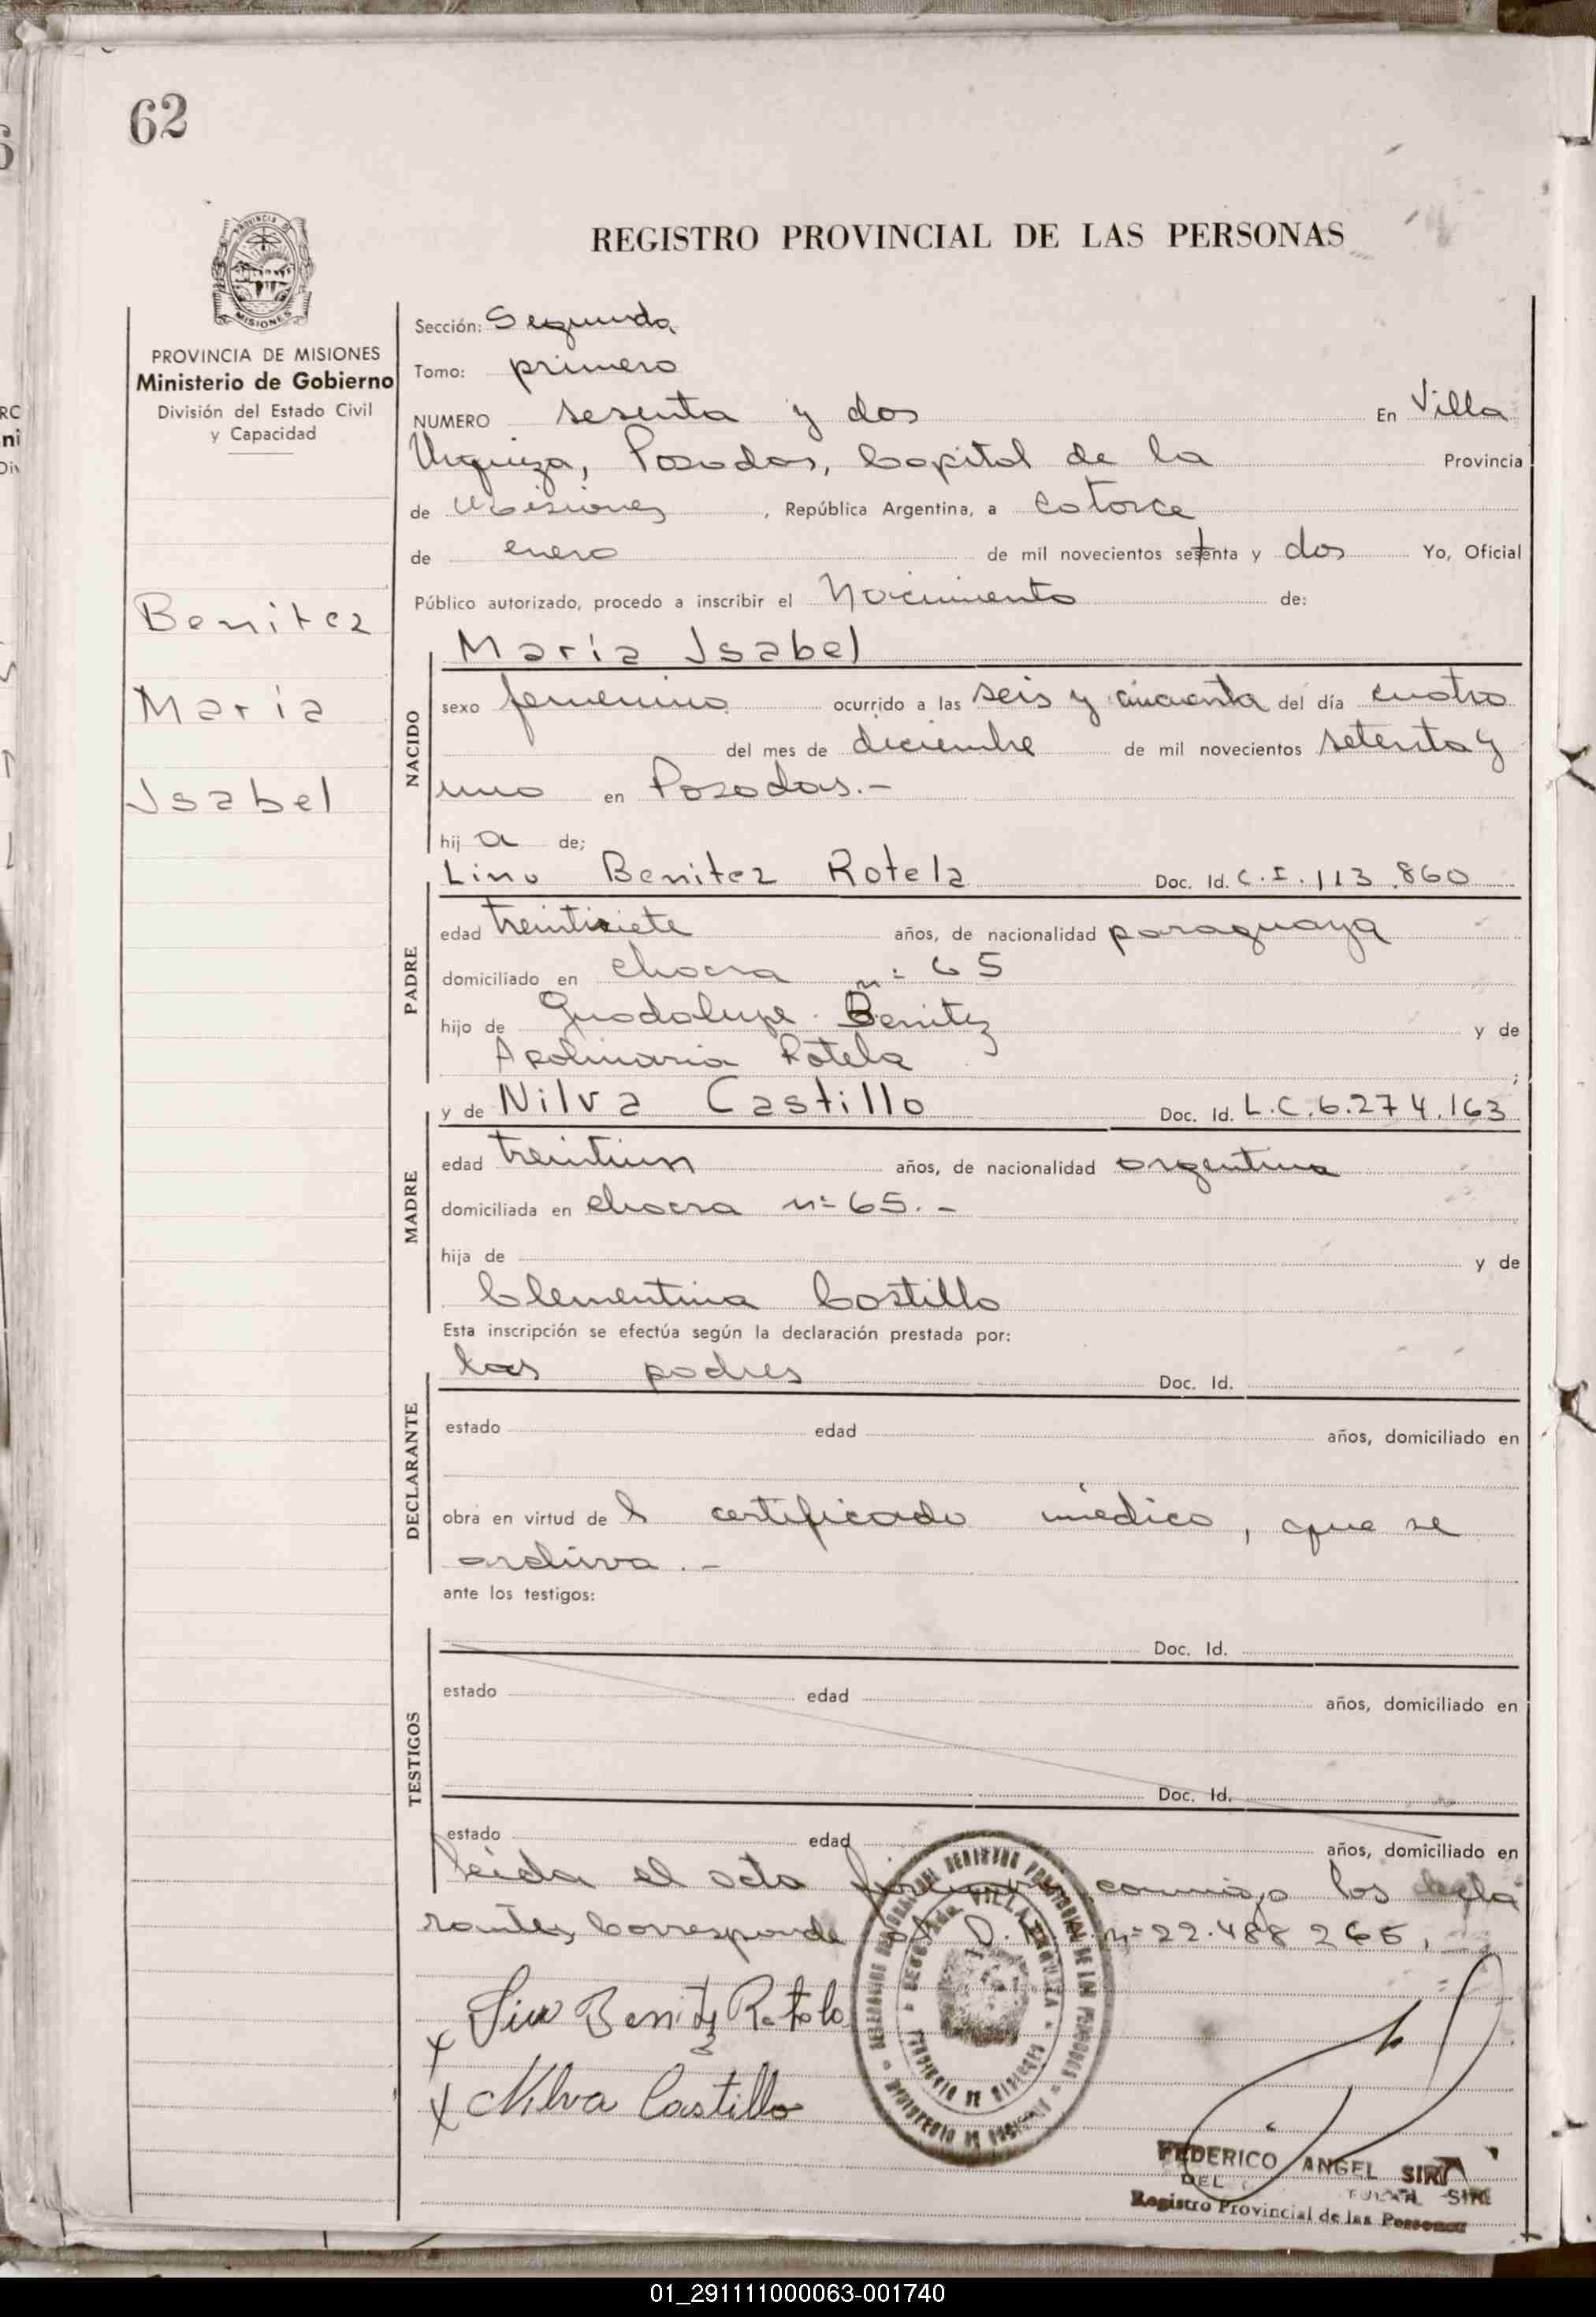 62
PROVINCIA DE
MISIONES
REGISTRO PROVINCIAL DE LAS PERSONAS
PROVINCIA DE MISIONES
Ministerio de Gobierno
División del Estado Civil
y Capacidad
Benitez
María
Isabel
Sección: Segunda
Tomo: primero
NUMERO sesenta y dos En Villa
Urquiza, Posadas, Capital de la Provincia
de Misiones, República Argentina, a catorce
de enero de mil novecientos setenta y dos Yo, Oficial
Público autorizado, procedo a inscribir el Nacimiento de:
María Isabel
NACIDO
sexo femenino ocurrido a las seis y cincuenta del día cuatro
del mes de diciembre de mil novecientos setenta y
uno en Posadas.-
hij a de;
Lino Benitez Rotela Doc. Id. C.I. 113.860
PADRE
edad treintisiete años, de nacionalidad paraguaya
domiciliado en chacra n= 65
hijo de Guadalupe Benitez y de
Apolinaria Rotela ;
y de Nilva Castillo Doc. Id. L.C. 6.274.163
MADRE
edad treintiun años, de nacionalidad argentina
domiciliada en chacra n= 65.-
hija de y de
Clementina Castillo
Esta inscripción se efectúa según la declaración prestada por:
los padres Doc. Id.
DECLARANTE
estado edad años, domiciliado en
obra en virtud de l certificado médico, que se
archiva.-
ante los testigos:
Doc. Id.
TESTIGOS
estado edad años, domiciliado en
Doc. Id.
estado edad años, domiciliado en
leida el acta firman conmigo los decla
rantes, Corresponde D. n= 22.488 265.
Lino Benitez Rotela
x
x Nilva Castillo
VILLA URQUIZA
PROVINCIA DE MISIONES
MINISTERIO DE GOBIERNO
FEDERICO ANGEL SIRI
DEL
Registro Provincial de las Personas
01_291111000063-001740